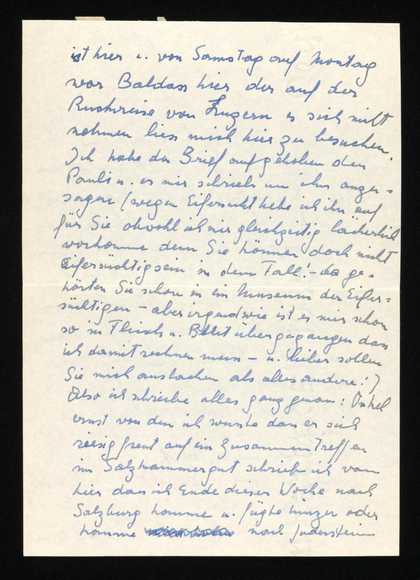 ist hier u. von Samstag auf Montag
war Baldass hier der auf der
Rückreise von Luzern es sich nicht
nehmen liess mich hier zu besuchen.
Ich habe den Brief aufgehoben den
Pauli u. es mir schrieb um ihn anzu-
sagen (wegen Eifersucht hebe ich ihn auf
für Sie obwohl ich mir gleichzeitig lächerlich
vorkomme denn Sie können doch nicht
eifersüchtig sein in dem Fall! - da ge-
hörten Sie schon in ein Museum der Eifer-
süchtigen - aber irgendwie ist es mir schon
so in Fleisch u. Blut übergegangen dass
ich damit rechnen muss - u. lieber sollen
Sie mich auslachen als alles andere!)
Also ich schreibe alles ganz genau: Onkel
Ernst von dem ich wusste dass er sich
riesig freut auf ein Zusammentreffen
im Salzkammergut schrieb ich von
hier dass ich Ende dieser Woche nach
Salzburg komme u. fügte hinzu oder
komme nach